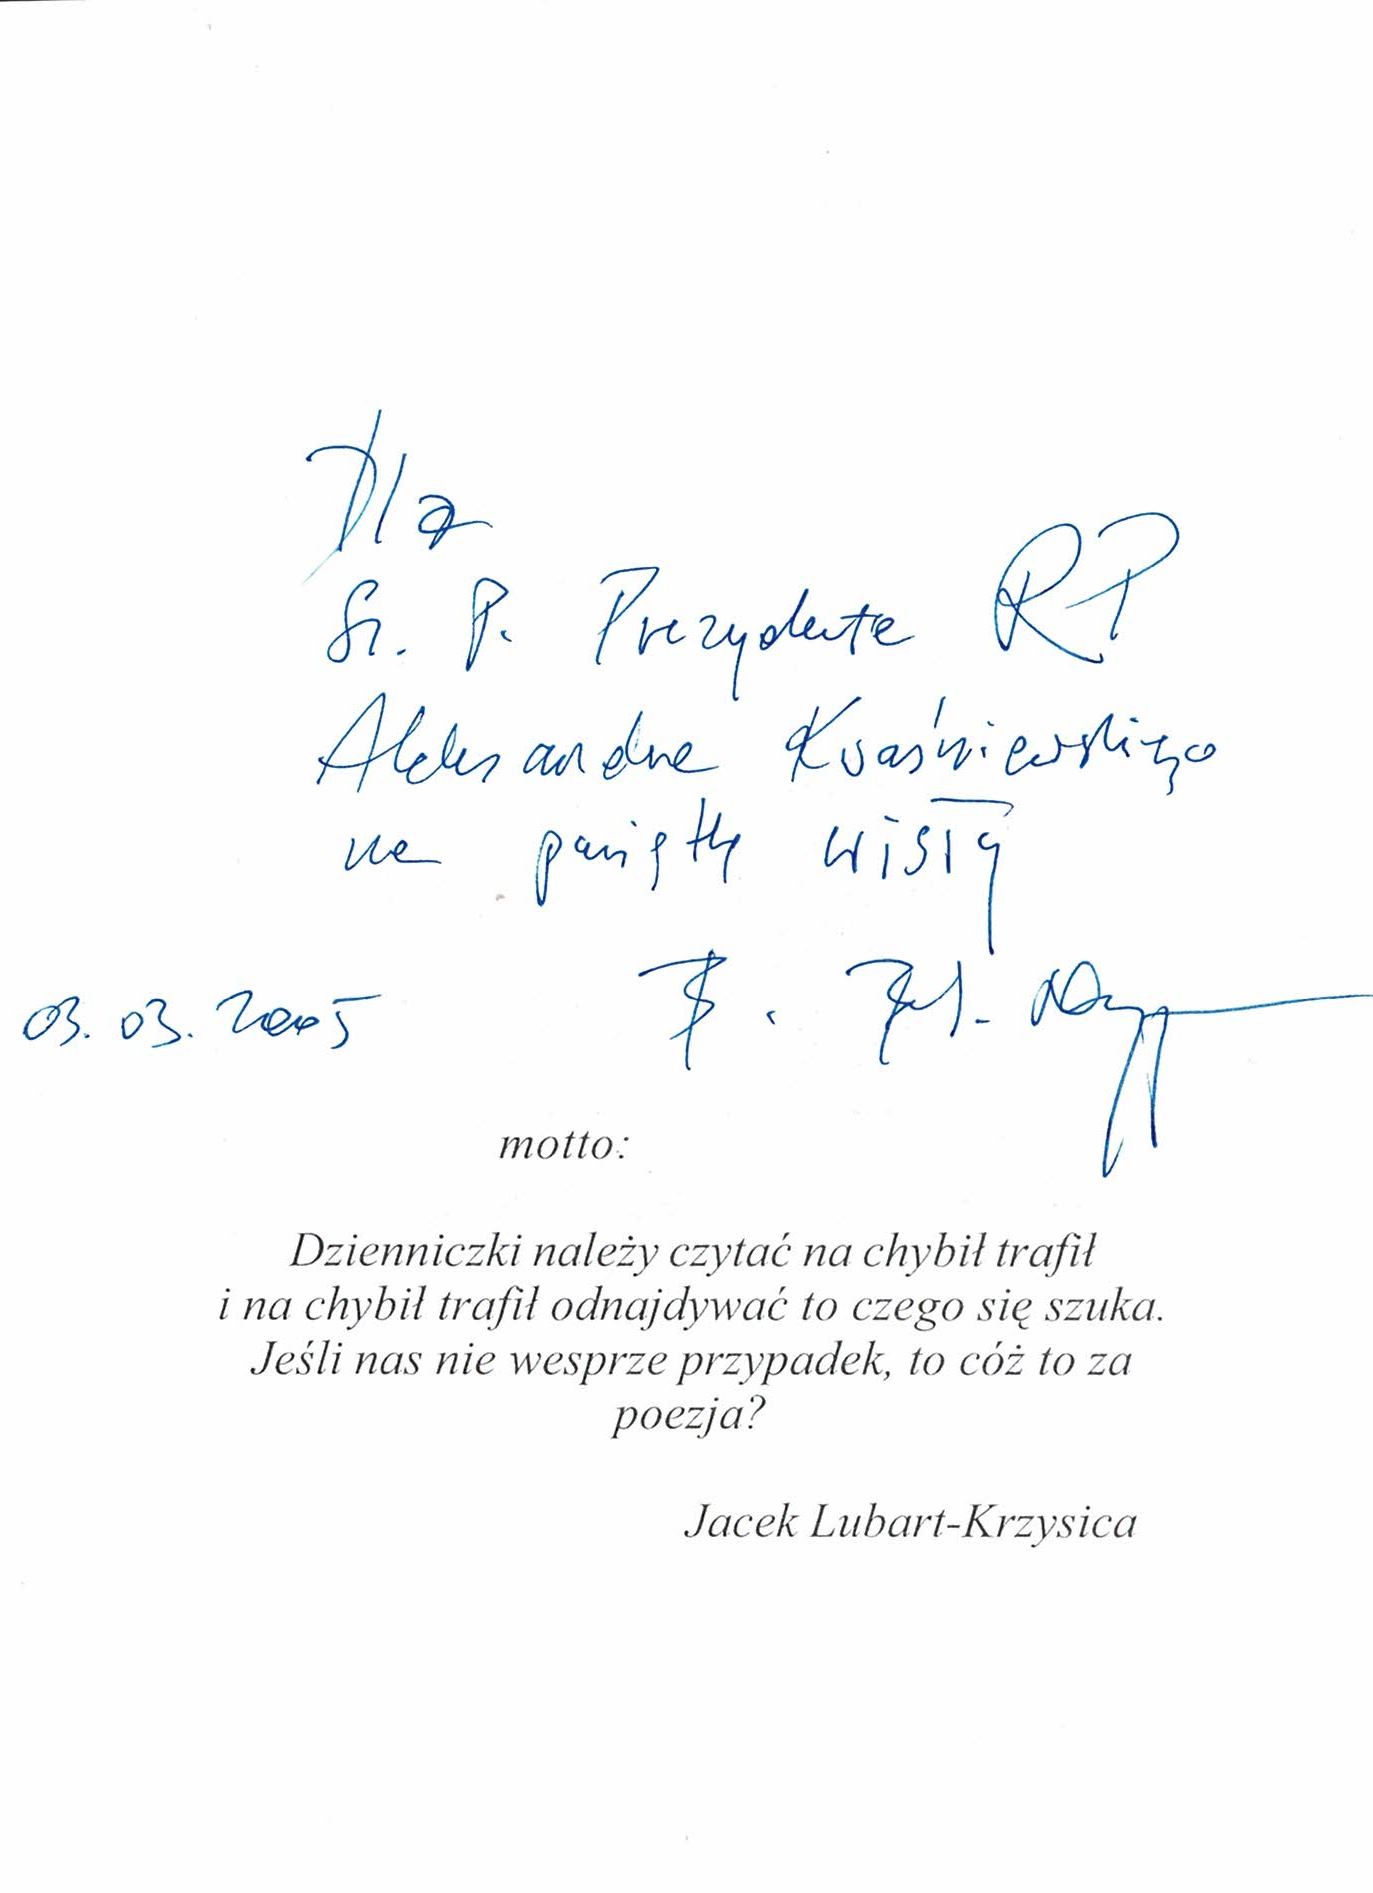 Dla
Sz. P. Prezydenta RP
Aleksandra Kwaśniewskiego
na pamiątkę
03.03.2005
motto:
Dzienniczki należy czytać na chybił trafił
i na chybił trafił odnajdywać to czego się szuka.
Jeśli nas nie wesprze przypadek, to cóż to za
poezja?
Jacek Lubart-Krzysica